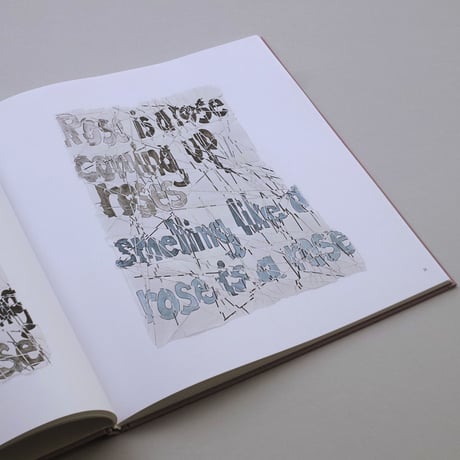 Rose is a rose
coming up
roses
smelling like a
rose is a rose